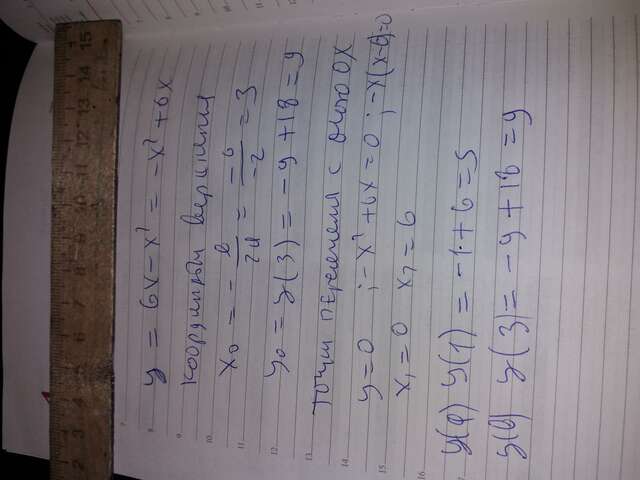 y = 6x - x² = -x² + 6x
Координаты вершины
x₀ = - b/2a = -6/-2 = 3
y₀ = y(3) = -9 + 18 = 9
точки пересечения с осью OX
y = 0 ; -x² + 6x = 0 ; -x(x-6) = 0
x₁ = 0 x₂ = 6
y(1) = -1 + 6 = 5
y(3) = -9 + 18 = 9
7
8
9
10
11
12
13
14
15
16
2 3 4 5 6 7 8 9 10 11 12 13 14 15